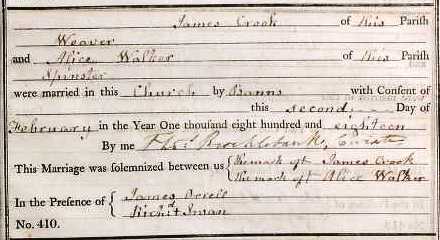 James Crook of this Parish
Weaver
and Alice Walker of this Parish
Spinster
were married in this Church by Banns with Consent of
this second Day of
February in the Year One thousand eight hundred and eighteen
By me Thos. Brocklebank, Curate
This Marriage was solemnized between us { the mark of + James Crook
the mark of + Alice Walker
In the Presence of { James
Richd. Swan
No. 410.